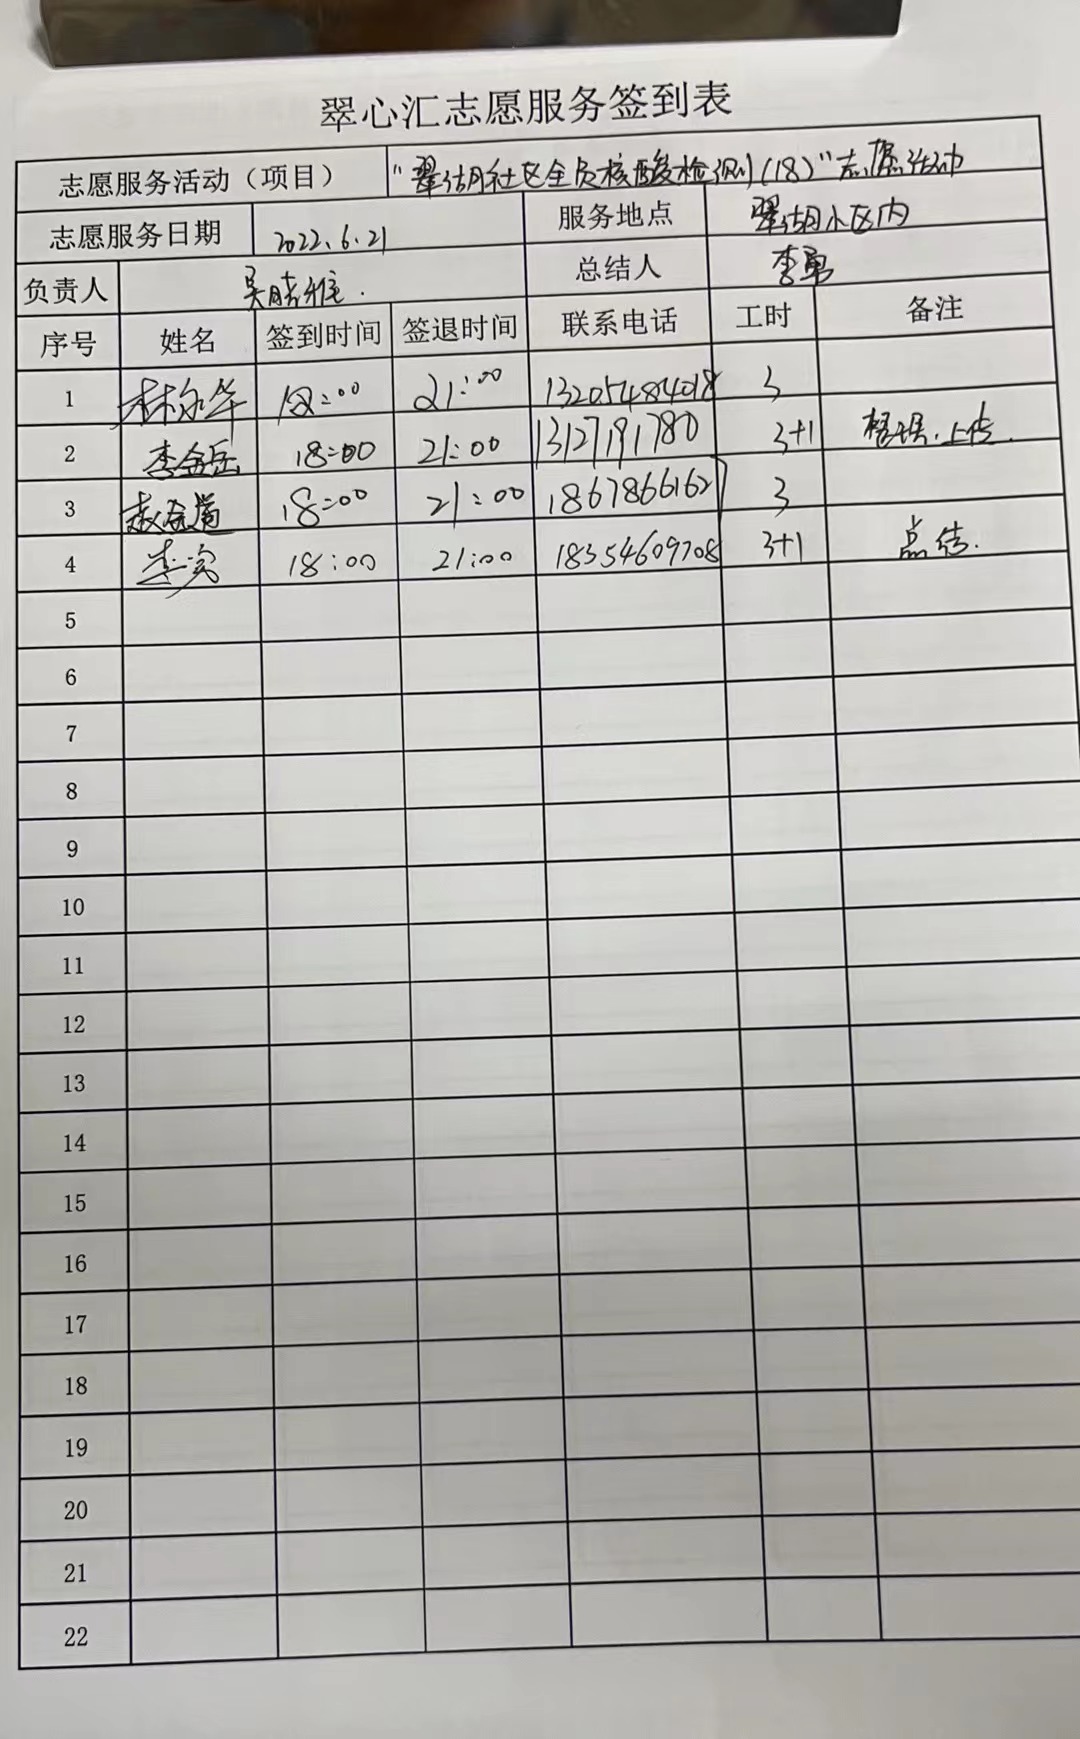 翠心汇志愿服务签到表
志愿服务活动（项目） "翠湖社区全员核酸检测(18)"志愿活动
志愿服务日期 2022.6.21 服务地点 翠湖小区内
负责人 吴晓雅. 总结人 李勇
序号 姓名 签到时间 签退时间 联系电话 工时 备注
1 林永华 18:00 21:00 13205484018 3
2 李金岳 18:00 21:00 13127191780 3+1 上传.
3 18:00 21:00 18678661627 3
4 18:00 21:00 18354609708 3+1 总结.
5
6
7
8
9
10
11
12
13
14
15
16
17
18
19
20
21
22